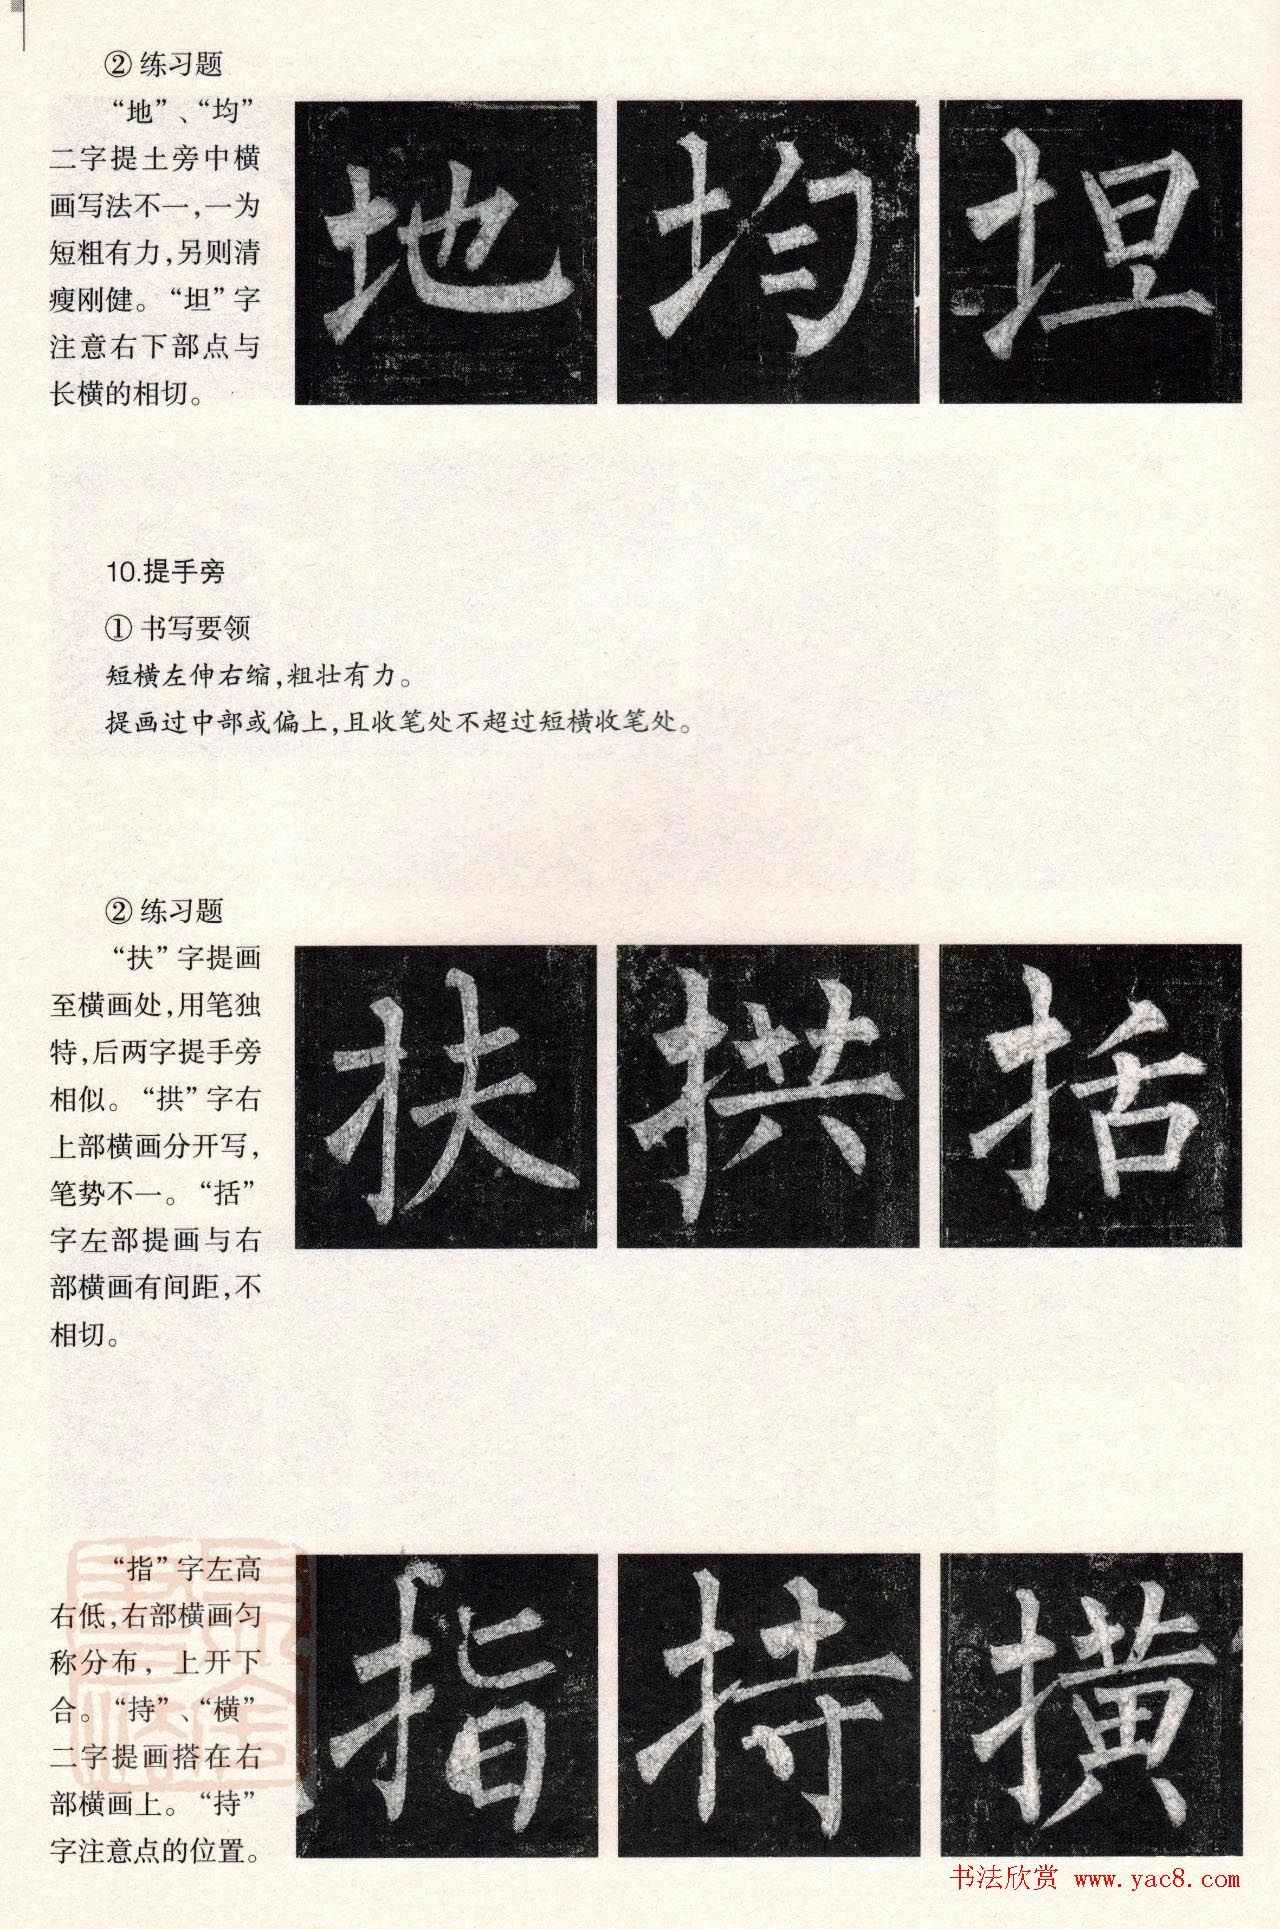 ② 练习题
“地”、“均”
二字提土旁中横
画写法不一,一为
短粗有力,另则清
瘦刚健。“坦”字
注意右下部点与
长横的相切。
地 均 坦
10.提手旁
① 书写要领
短横左伸右缩,粗壮有力。
提画过中部或偏上,且收笔处不超过短横收笔处。
② 练习题
“扶”字提画
至横画处,用笔独
特,后两字提手旁
相似。“拱”字右
上部横画分开写,
笔势不一。“括”
字左部提画与右
部横画有间距,不
相切。
扶 拱 括
“指”字左高
右低,右部横画匀
称分布,上开下
合。“持”、“横”
二字提画搭在右
部横画上。“持”
字注意点的位置。
指 持 撗
书法欣赏 www.yac8.com